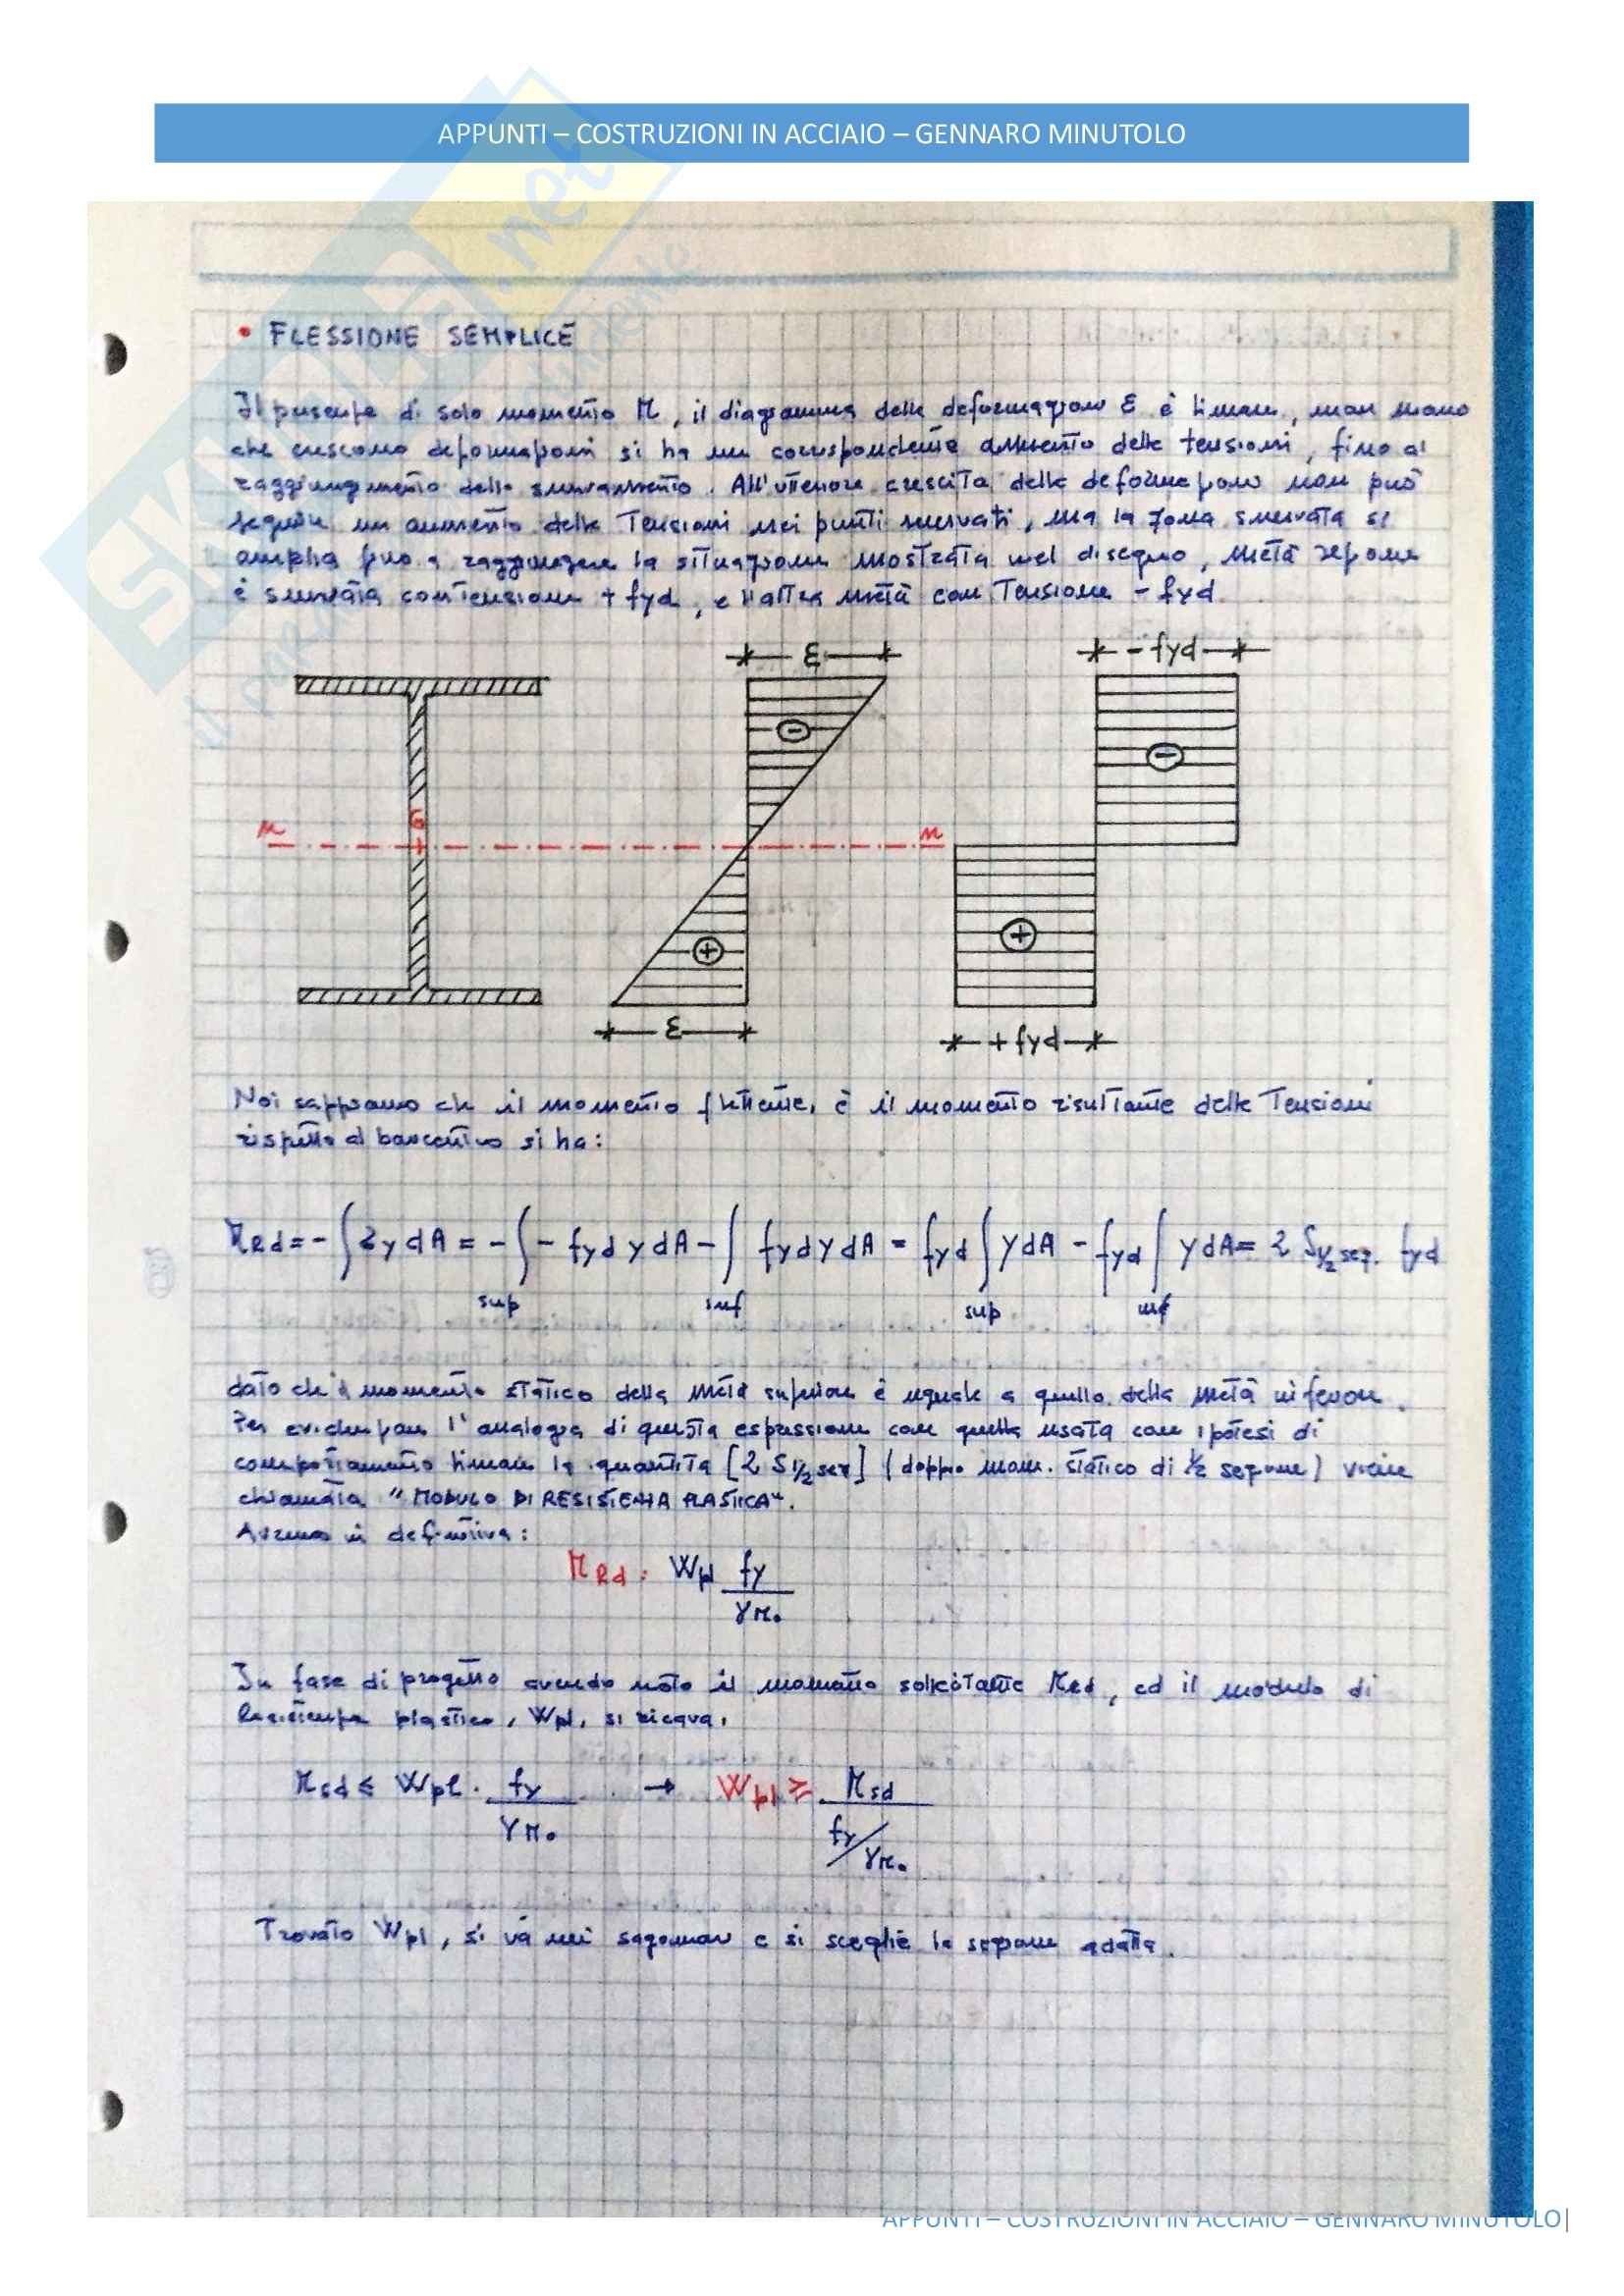 APPUNTI – COSTRUZIONI IN ACCIAIO – GENNARO MINUTOLO
SKUOLA.net
il paradiso dello studente
• FLESSIONE SEMPLICE
Il presente di solo momento M, il diagramma delle deformazioni ε è lineare, man mano
che crescono deformazioni si ha un corrispondente aumento delle tensioni, fino al
raggiungimento dello snervamento. All'ulteriore crescita delle deformazioni non può
seguire un aumento delle Tensioni nei punti snervati, ma la zona snervata si
amplia fino a raggiungere la situazione mostrata nel disegno, metà sezione
è snervata con tensione + fyd, e l'altra metà con Tensione - fyd.
ε
- fyd
-
-
G
n
n
+
+
ε
+ fyd
Noi sappiamo che il momento flettente, è il momento risultante delle Tensioni
rispetto al baricentro si ha:
MRd = - ∫ σ y dA = - ∫ - fyd y dA - ∫ fyd y dA = fyd ∫ y dA - fyd ∫ y dA = 2 S½ sez. fyd
sup inf sup inf
dato che il momento statico della metà superiore è uguale a quello della metà inferiore.
Per evidenziare l'analogia di questa espressione con quella usata con ipotesi di
comportamento lineare la quantità [2 S½ sez] (doppio mom. statico di ½ sezione) viene
chiamata "MODULO DI RESISTENZA PLASTICA".
Avremo in definitiva:
MRd = Wpl fy / γM₀
In fase di progetto avendo noto il momento sollecitante Med, ed il modulo di
Resistenza plastico, Wpl, si ricava,
Msd ≤ Wpl · fy / γM₀ → Wpl ≥ Msd / fy/γM₀
Trovato Wpl, si va nei sagomari e si sceglie la sezione adatta.
APPUNTI – COSTRUZIONI IN ACCIAIO – GENNARO MINUTOLO|